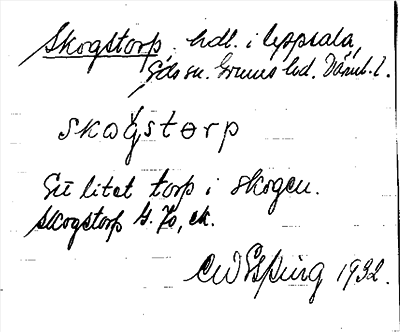 Skogstorp. hdl. i Uppsala,
Eds sn. Grums hd. Värml. l.
skogstorp
Ett litet torp i skogen.
Skogstorp G. Jo, ek.
CW Esping 1932.